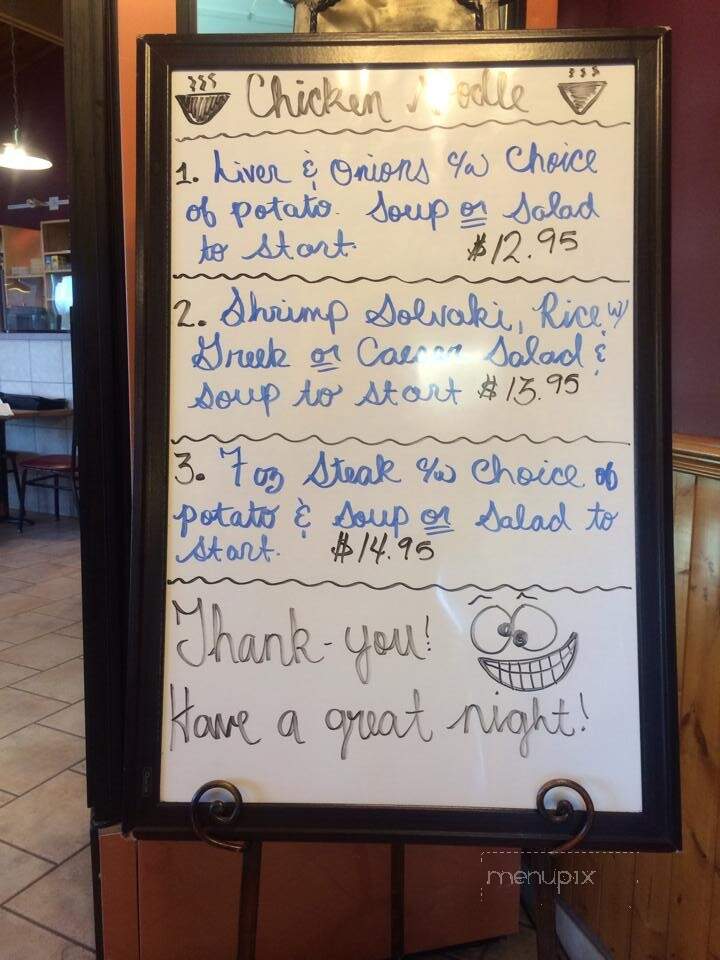 Chicken Noodle
1. Liver & Onions c/w Choice
of potato. Soup or Salad
to start. $12.95
2. Shrimp Solvaki, Rice w/
Greek or Caesar Salad &
Soup to start $13.95
3. 7 oz Steak c/w Choice of
potato & Soup or Salad to
start. $14.95
Thank-you!
Have a great night!
menupix